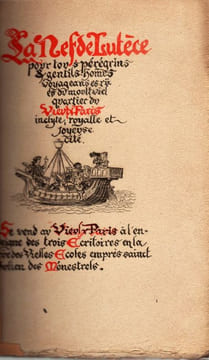 La Nef de Lutèce
pour touys pérégrins
& gentils homes
voyageans es ry
es du moult viel
quartier du
Vieulx Paris
inclyte, royalle et
joyeuse
cité.
Se vend au Vieulx Paris à l'en-
seigne des trois Escritoires en la
rue des Vieilles Escoles emprès sainct
Julien des Ménestrels.